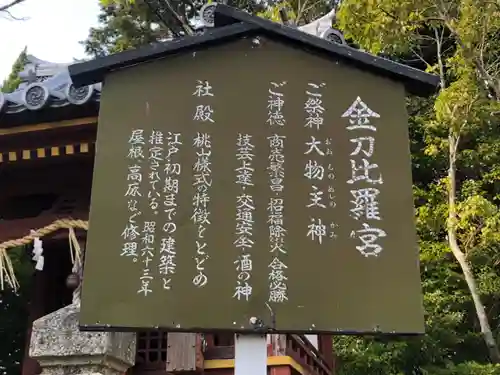 金刀比羅宮
ご祭神 大物主神
おおものぬしのかみ
ご神徳 商売繁昌・招福除災・合格必勝
技芸上達・交通安全・酒の神
社殿 桃山様式の特徴をとどめ
江戸初期までの建築と
推定されている。昭和六十三年
屋根、高床などを修理。